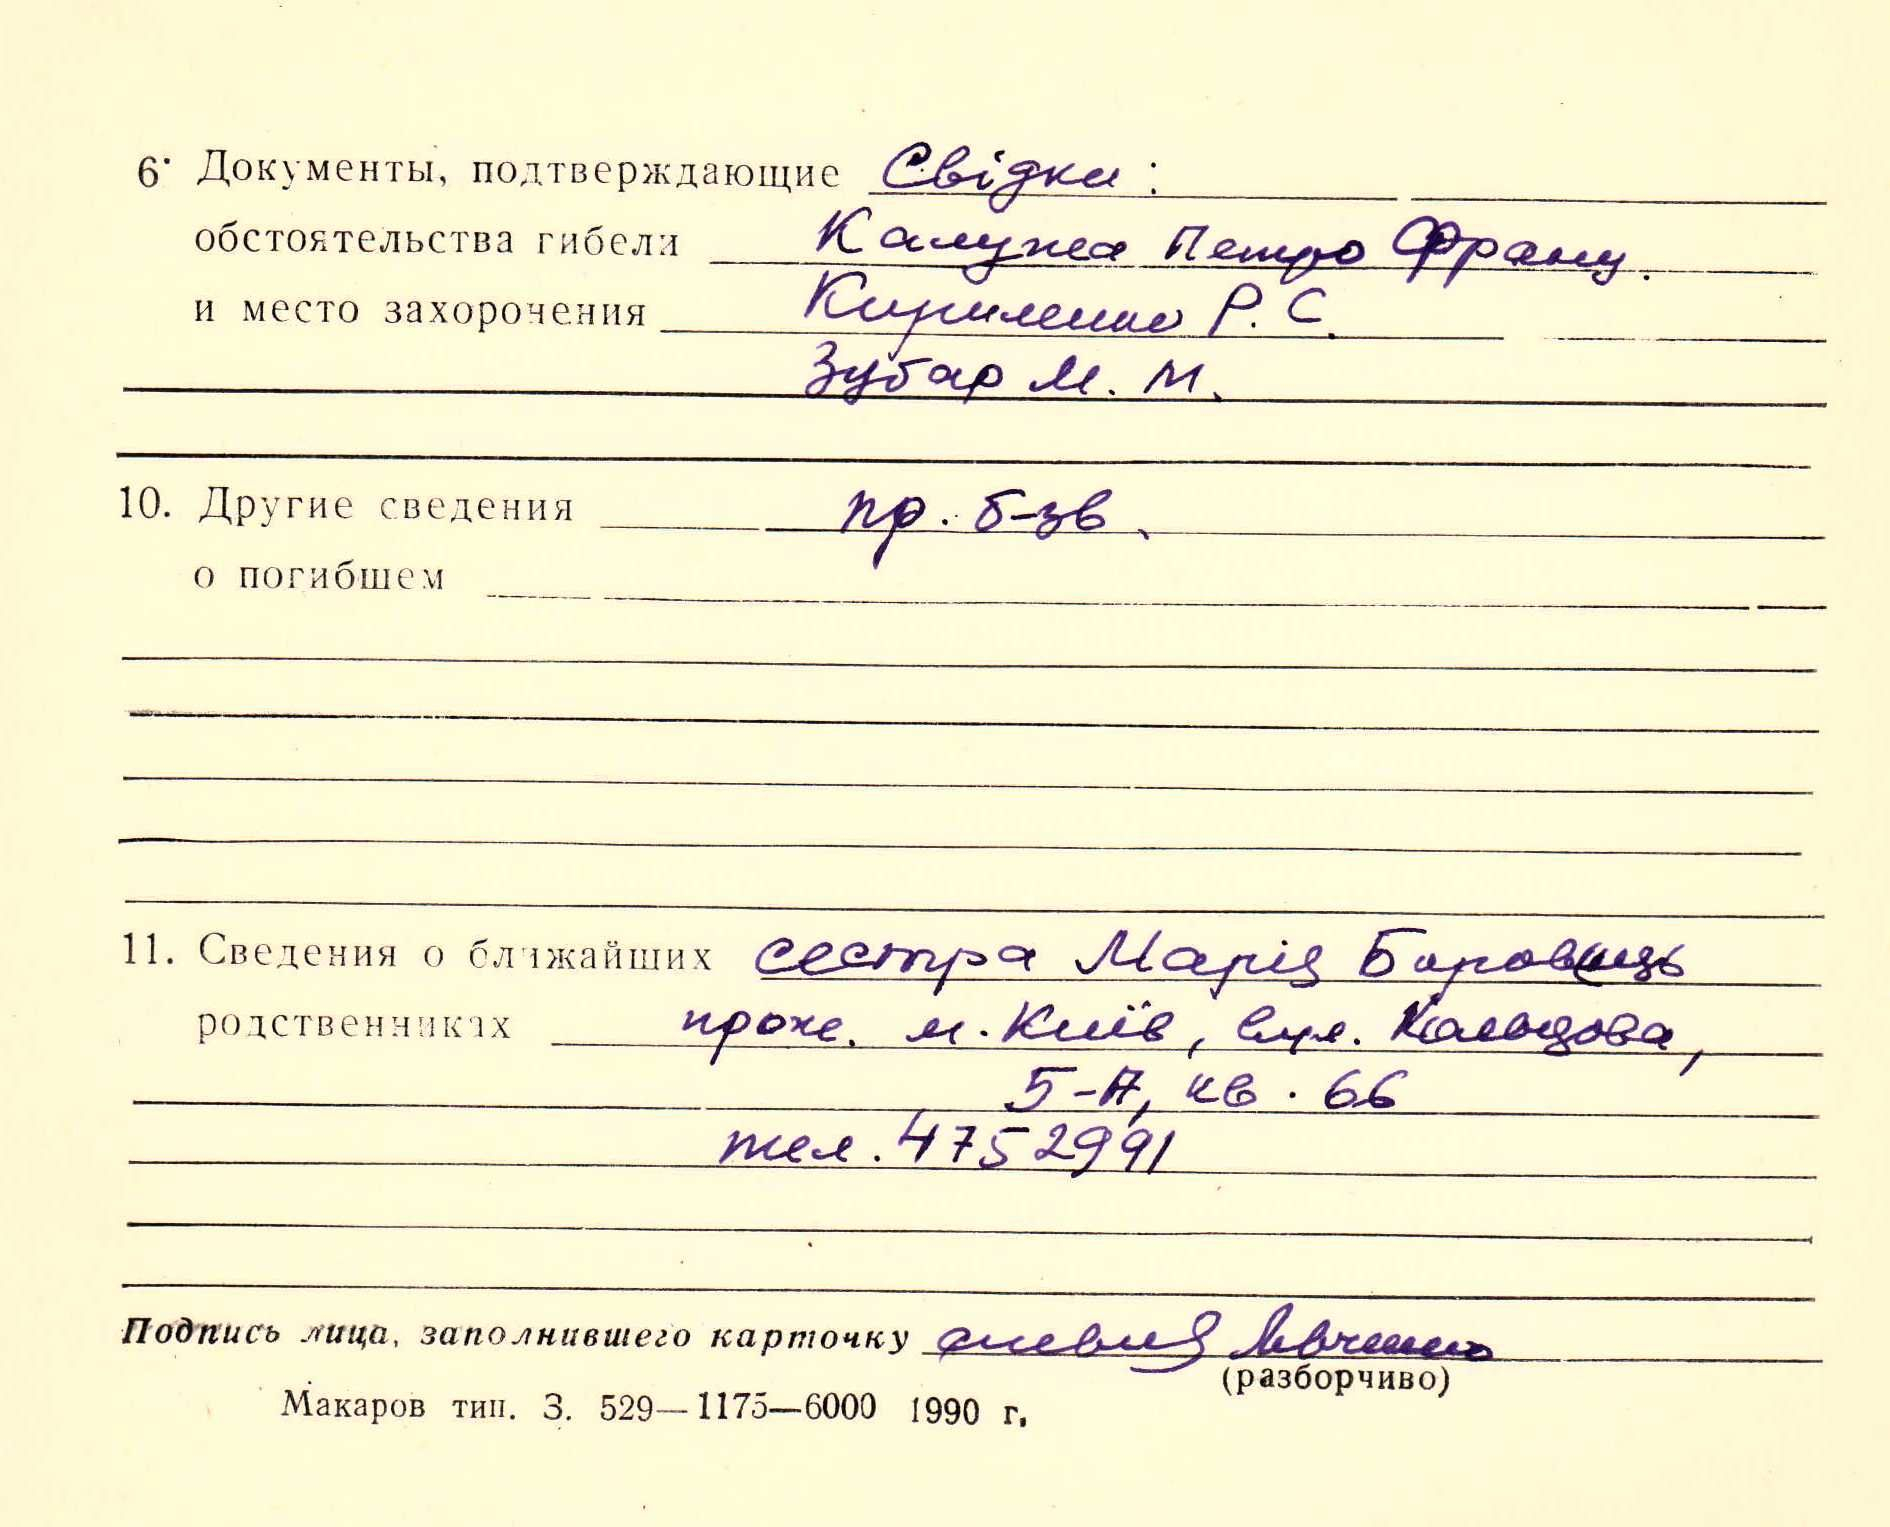 6. Документы, подтверждающие Свідки:
обстоятельства гибели Калужа Петро Франц.
и место захоронения Кириленко Р. С.
Зубар М. М.
10. Другие сведения пр. б-зв.
о погибшем
11. Сведения о ближайших сестра Марія Боровець
родственниках прож. м. Київ, вул. Кольцова,
5-А, кв. 66
тел. 4752991
Подпись лица, заполнившего карточку
(разборчиво)
Макаров тип. З. 529—1175—6000 1990 г.